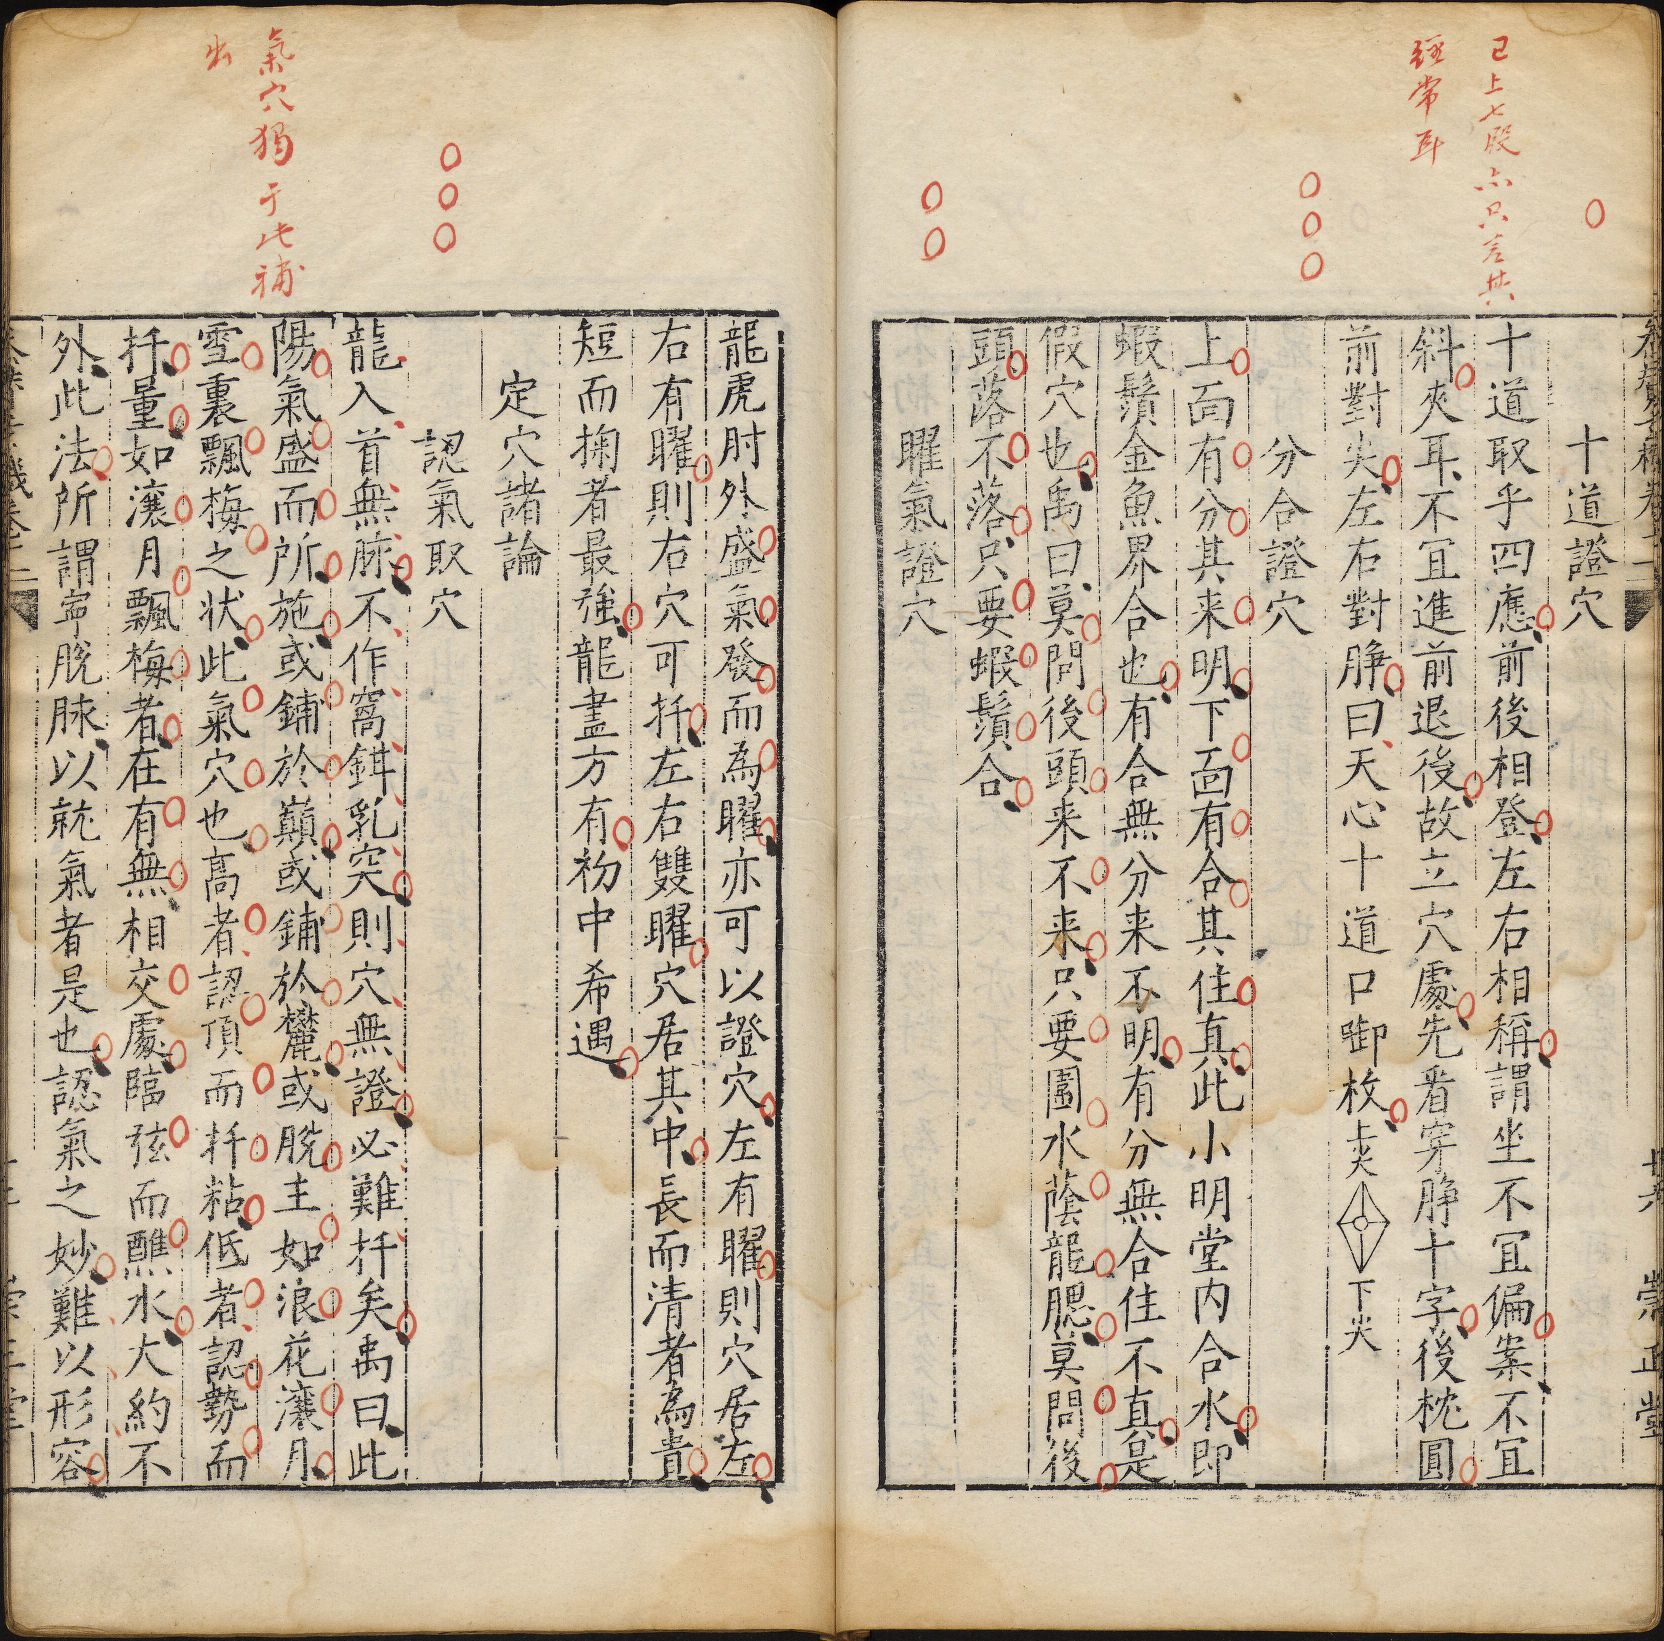 已上七股亦只言其
經常耳
十道證穴
十道取乎四應前後相登左右相稱謂坐不宜偏案不宜
斜夾耳不宜進前退後故立穴處先看穿脝十字後枕圓
前對尖左右對脝曰天心十道口啣枚上尖下尖
分合證穴
上面有分其来明下面有合其住真此小明堂内合水即
蝦鬚金魚界合也有合無分来不明有分無合住不真是
假穴也禹曰莫問後頭来不来只要圓水蔭龍腮莫問後
頭落不落只要蝦鬚合
曜氣證穴
崇正堂
氣穴獨于此補
出
龍虎肘外盛氣發而為曜亦可以證穴左有曜則穴居左
右有曜則右穴可扦左右雙曜穴居其中長而清者為貴
短而掬者最強龍盡方有礿中希遇
定穴諸論
認氣取穴
龍入首無脉不作窩鉗乳突則穴無證必難扦矣禹曰此
陽氣盛而所施或鋪於巔或鋪於麓或脱主如浪花瀼月
雪裏飄梅之状此氣穴也高者認頂而扦粘低者認勢而
扦量如瀼月飄梅者在有無相交處臨弦而醮水大約不
外此法所謂寧脱脉以就氣者是也認氣之妙難以形容